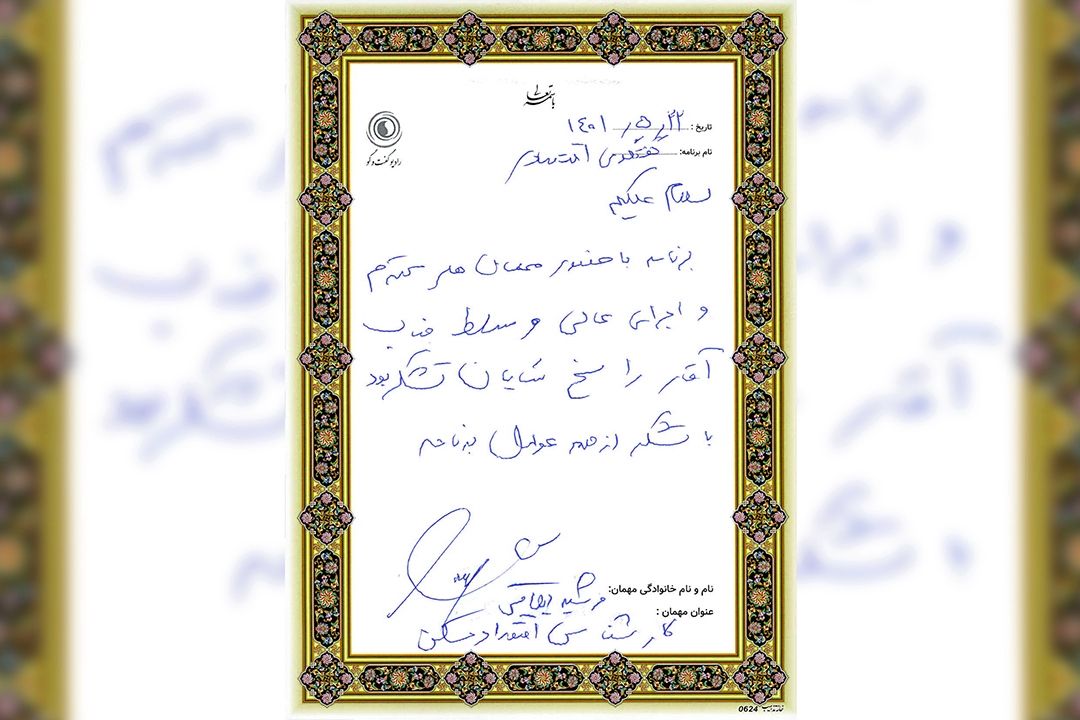 باسمه تعالی
رادیو گفت و گو
تاریخ : ۲۲ ر ۵ ر ۱۴۰۱
نام برنامه: گفتگوی اقتصادی
سلام علیکم
برنامه با حضور مهمان های محترم
و اجرای عالی و مسلط جذاب
آقای راسخ شایان تشکر بود
با تشکر از همه عوامل برنامه
نام و نام خانوادگی مهمان:
عنوان مهمان : کارشناس اقتصاد مسکن
0624